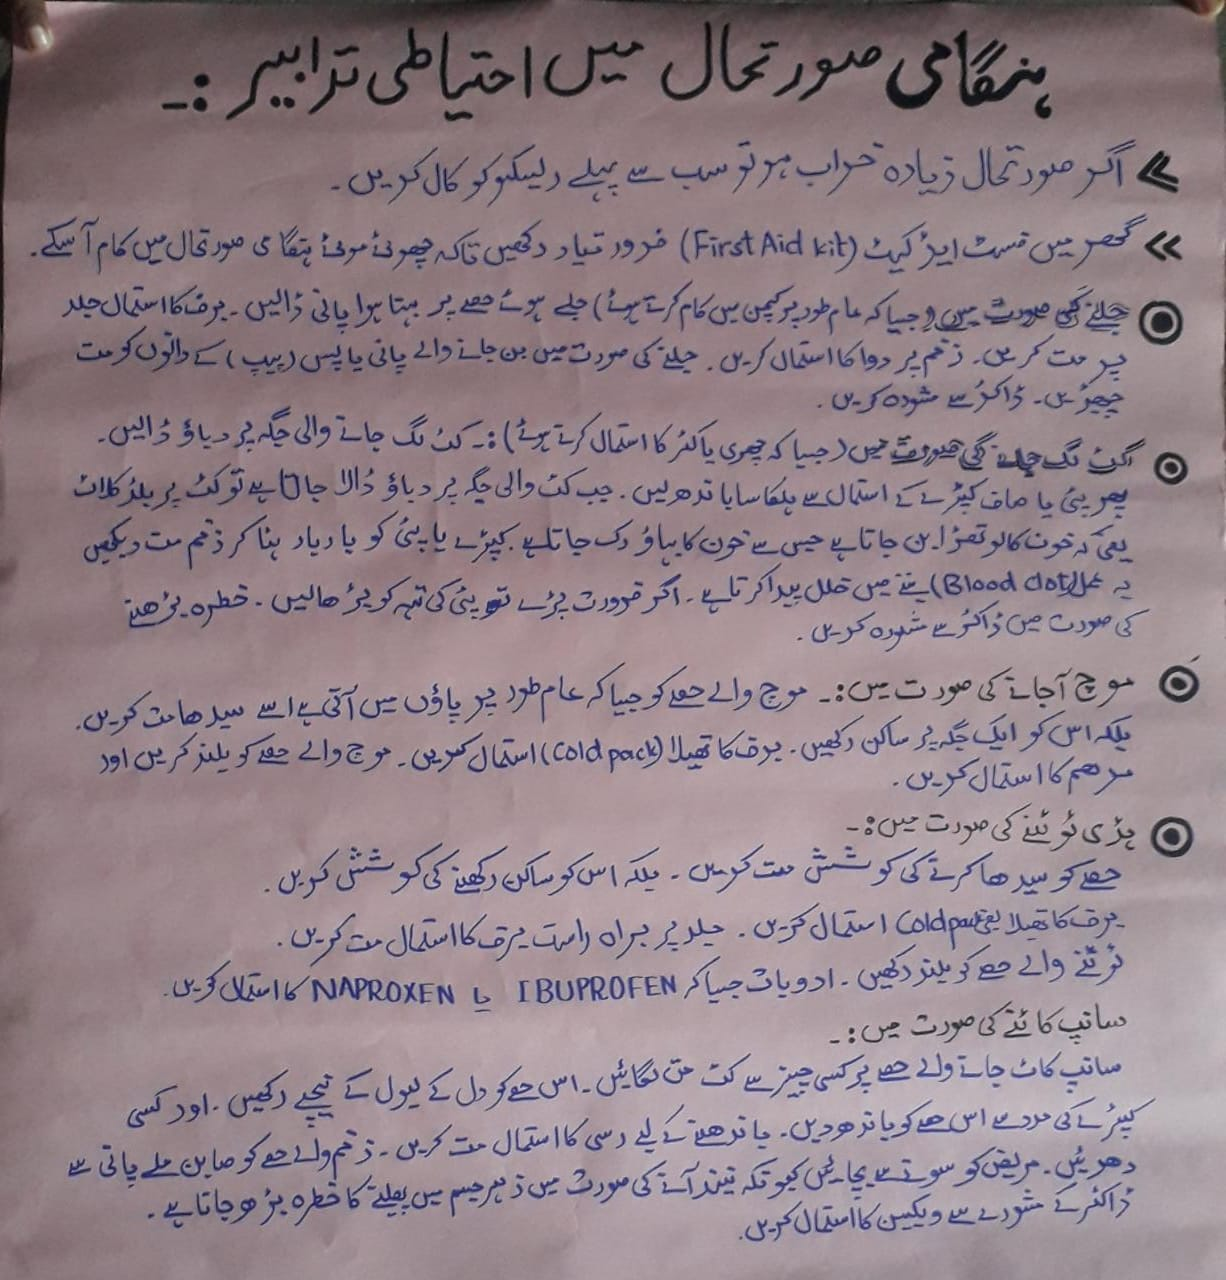 ہنگامی صورتحال میں احتیاطی تدابیر :۔
اگر صورتحال زیادہ خراب ہو تو سب سے پہلے ریسکیو کو کال کریں ۔
گھر میں فسٹ ایڈ کیٹ (First Aid kit) ضرور تیار رکھیں تاکہ چھوٹی موٹی ہنگامی صورتحال میں کام آ سکے ۔
جلنے کی صورت میں (جیسا کہ عام طور پر کیچن میں کام کرتے ہوئے) جلے ہوئے حصے پر بہتا ہوا پانی ڈالیں ۔ برف کا استمال جلد
پر مت کریں ۔ زخم پر دوا کا استمال کریں ۔ جلنے کی صورت میں بن جانے والے پانی یا پس (پیپ) کے دانوں کو مت
چھیڑیں ۔ ڈاکٹر سے مشورہ کریں ۔
کٹ لگ جانے کی صورت میں (جیسا کہ چھری یا کٹر کا استمال کرتے ہوئے) :۔ کٹ لگ جانے والی جگہ پر دباؤ ڈالیں ۔
پھر پٹی یا صاف کپڑے کے استمال سے ہلکا سا باندھ لیں ۔ جب کٹ والی جگہ پر دباؤ ڈالا جاتا ہے تو کٹ پر بلڈ کلاٹ
یعنی کہ خون کا لوتھڑا بن جاتا ہے جس سے خون کا بہاؤ رک جاتا ہے ۔ کپڑے یا پٹی کو بار بار ہٹا کر زخم مت دیکھیں
یہ عمل (Blood clot) بننے میں خلل پیدا کرتا ہے ۔ اگر ضرورت پڑے تو پٹی کی تہہ کو بڑھا لیں ۔ خطرہ بڑھنے
کی صورت میں ڈاکٹر سے مشورہ کریں ۔
موچ آ جانے کی صورت میں :۔ موچ والے حصے کو جیسا کہ عام طور پر پاؤں میں آتی ہے اسے سیدھا مت کریں ۔
بلکہ اس کو ایک جگہ پر ساکن رکھیں ۔ برف کا تھیلا (Cold pack) استمال کریں ۔ موچ والے حصے کو بلند کریں اور
مرھم کا استمال کریں ۔
ہڈی ٹوٹنے کی صورت میں :۔
حصے کو سیدھا کرنے کی کوشش مت کریں ۔ بلکہ اس کو ساکن رکھنے کی کوشش کریں ۔
برف کا تھیلا یعنی Cold pack استمال کریں ۔ جلد پر براہ راست برف کا استمال مت کریں ۔
ٹوٹنے والے حصے کو بلند رکھیں ۔ ادویات جیسا کہ IBUPROFEN یا NAPROXEN کا استمال کریں ۔
سانپ کاٹنے کی صورت میں :۔
سانپ کاٹ جانے والے حصے پر کسی چیز سے کٹ مت لگائیں ۔ اس حصے کو دل کے لیول کے نیچے رکھیں ۔ اور کسی
کپڑے کی مدد سے اس حصے کو باندھ دیں ۔ باندھنے کے لیے رسی کا استمال مت کریں ۔ زخم والے حصے کو صابن ملے پانی سے
دھوئیں ۔ مریض کو سونے سے بچائیں کیونکہ نیند آنے کی صورت میں زہر جسم میں پھیلنے کا خطرہ بڑھ جاتا ہے ۔
ڈاکٹر کے مشورے سے ویکسین کا استمال کریں ۔